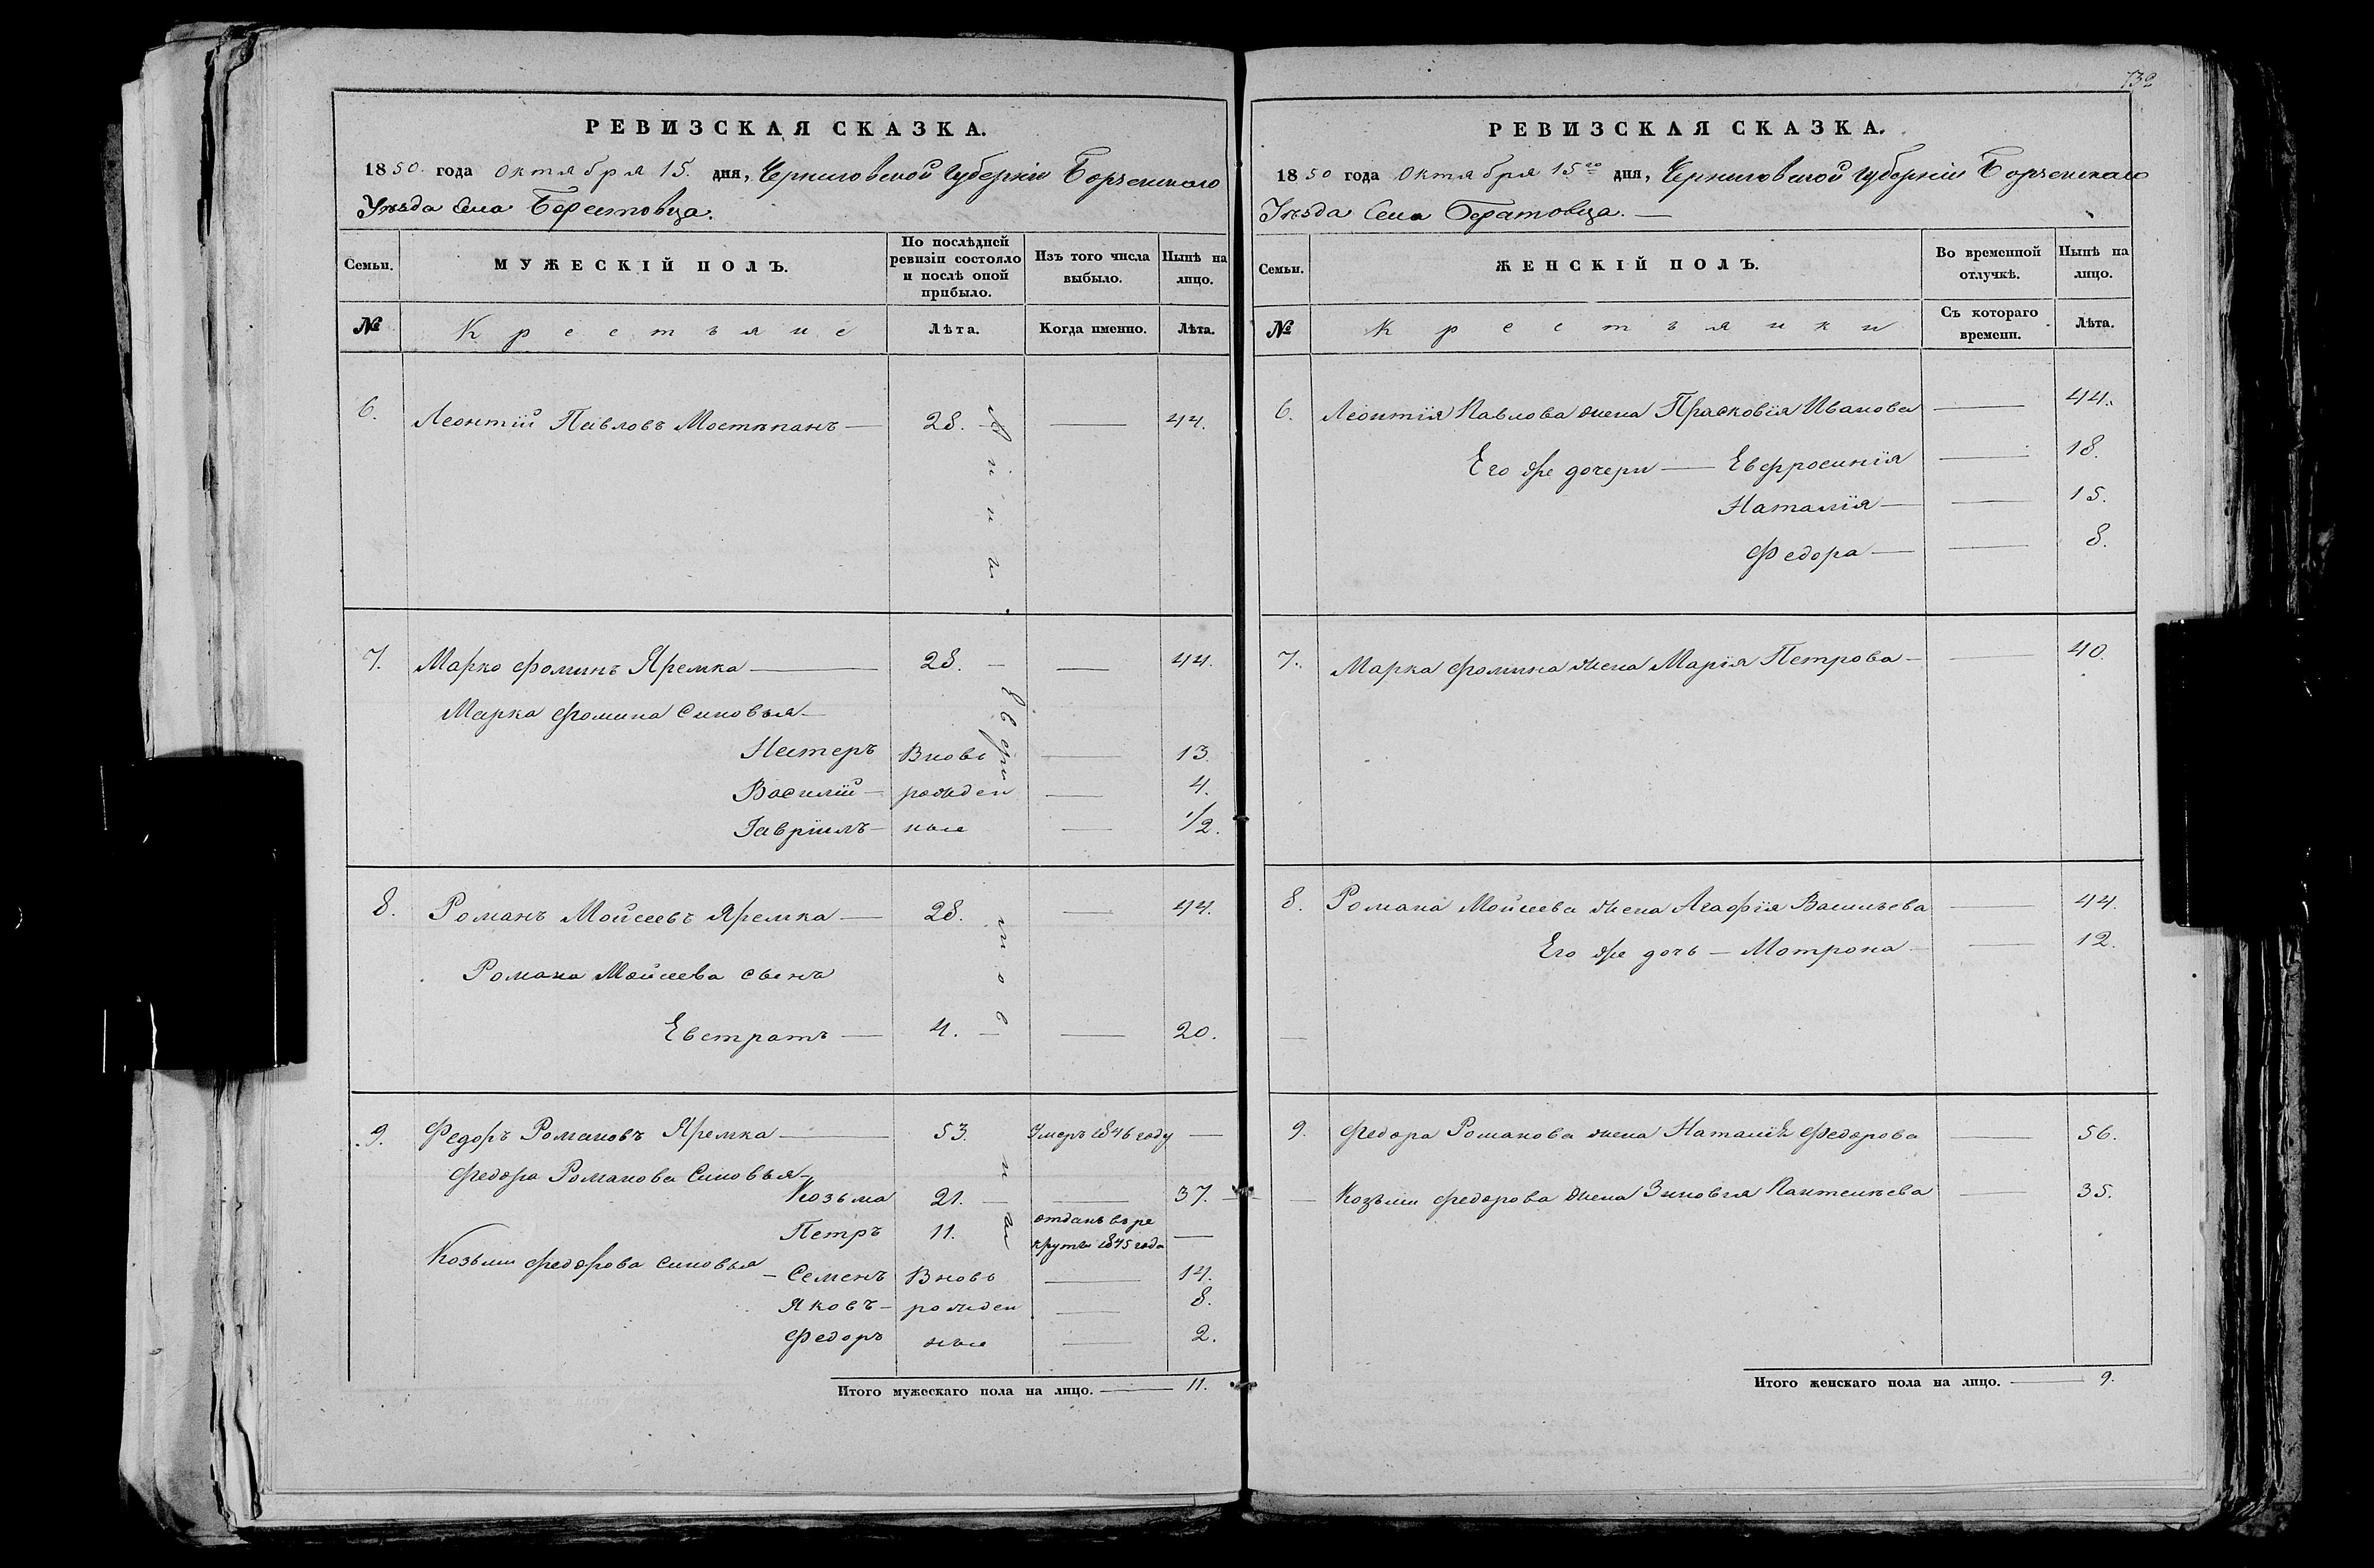 РЕВИЗСКАЯ СКАЗКА.
1850. года Октября 15. дня, Черниговской губерніи Борзенскаго
Уѣзда Села Берестовца.
Семьи.
МУЖЕСКІЙ ПОЛЪ.
По послѣдней ревизіи состояло и послѣ оной прибыло.
Изъ того числа выбыло.
Нынѣ на лицо.
№
Крестьяне
Лѣта.
Когда именно.
Лѣта.
6. Леонтій Павловъ Мостипанъ — 28. — — 44.
7. Марко Фоминъ Яремка — 28. — — 44.
Марка Фомина Сыновья —
Нестеръ Вновь — 13.
Василій — рожден — 4.
Гавріилъ — ные — 1/2.
8. Романъ Мойсеевъ Яремка — 28. — 44.
Романа Мойсеева сынъ
Евстратъ — 4. — — 20.
9. Федоръ Романовъ Яремка — 53. Умеръ 1846 году —
Федора Романова Сыновья —
Козьма 21. — — 37. —
Петръ 11. отданъ въ ре
круты 1845 года —
Козьмы Федорова сыновья — Семенъ Вновь — 14.
Яковъ — рожден — 8.
Федоръ ные — 2.
Итого мужескаго пола на лицо. — 11.
132
РЕВИЗСКАЯ СКАЗКА.
1850 года Октября 15го дня, Черниговской губерніи Борзенскаго
Уѣзда Села Берестовца. —
Семьи.
ЖЕНСКІЙ ПОЛЪ.
Во временной отлучкѣ.
Нынѣ на лицо.
№
Крестьянки
Съ котораго времени.
Лѣта.
6. Леонтія Павлова жена Прасковія Иванова — 44.
Его же дочери — Евфросинія — 18.
Наталія — — 15.
Федора — — 8.
7. Марка Фомина жена Марія Петрова — — 40.
8. Романа Мойсеева жена Агафія Васильева — 44.
Его же дочь — Мотрона — — 12.
9. Федора Романова жена Наталія Федорова — 56.
— Козьмы Федорова жена Зиновья Пантелѣева — 35.
Итого женскаго пола на лицо. — 9.